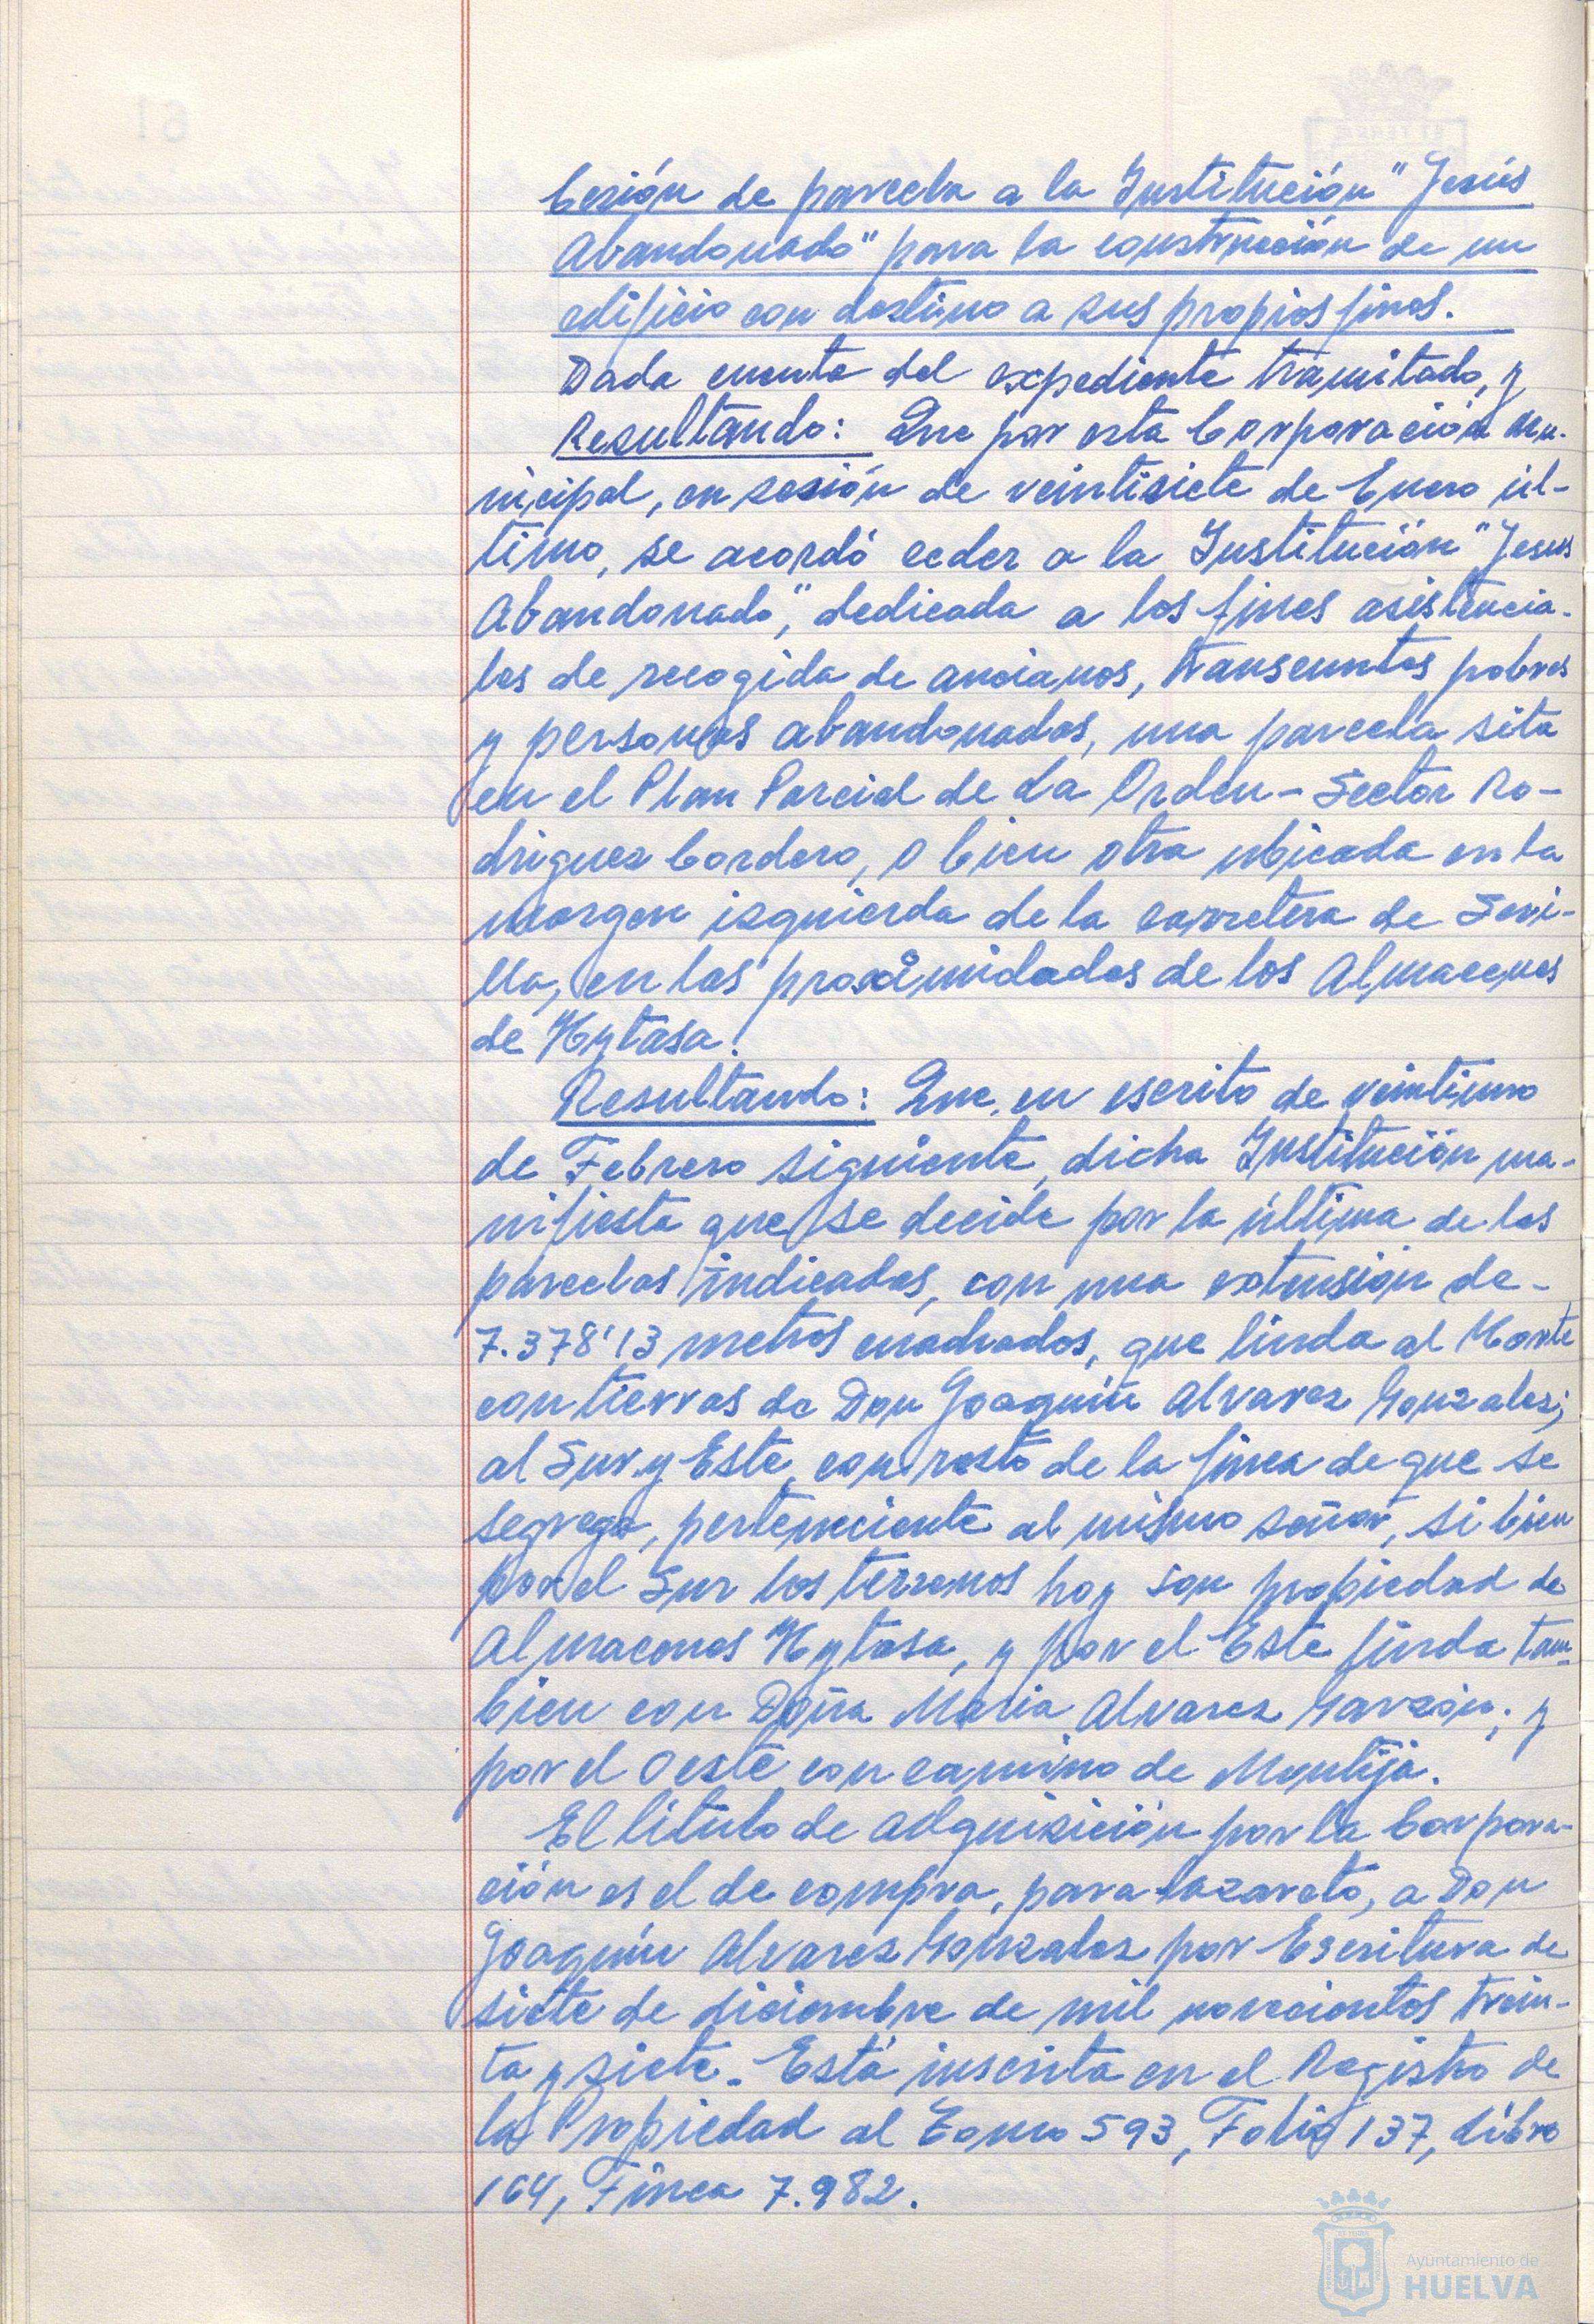 Cesión de parcela a la Institución "Jesús
Abandonado" para la construcción de un
edificio con destino a sus propios fines.
Dada cuenta del expediente tramitado, y
Resultando: Que por esta Corporación Mu-
nicipal, en sesión de veintisiete de Enero úl-
timo, se acordó ceder a la Institución "Jesus
Abandonado", dedicada a los fines asistencia-
les de recogida de ancianos, transeuntes pobres
y personas abandonadas, una parcela sita
en el Plan Parcial de La Orden - Sector Ro-
driguez Cordero, o bien otra ubicada en la
margen izquierda de la carretera de Sevi-
lla, en las proximidades de los Almacenes
de Hytasa.
Resultando: Que, en escrito de veintiuno
de Febrero siguiente, dicha Institución ma-
nifiesta que se decide por la última de las
parcelas indicadas, con una extension de-
7.378'13 metros cuadrados, que linda al Norte
con tierras de Don Joaquín Alvarez Gonzalez;
al Sur y Este, con resto de la finca de que se
segrega, perteneciente al mismo señor, si bien
por el Sur los terrenos hoy son propiedad de
Almacenes Hytasa, y por el Este linda tam-
bien con Doña Maria Alvarez Garzón; y
por el Oeste con camino de Montija.
El título de adquisición por la Corpora-
ción es el de compra, para lazareto, a Don
Joaquín Alvarez Gonzalez por Escritura de
siete de diciembre de mil novecientos trein-
ta y siete. Está inscrita en el Registro de
la Propiedad al Tomo 593, Folio 137, Libro
164, Finca 7.982.
Ayuntamiento de
HUELVA